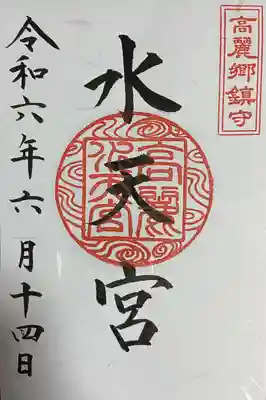 高麗郷鎮守
水天宮
高麗水天宮
令和六年六月十四日